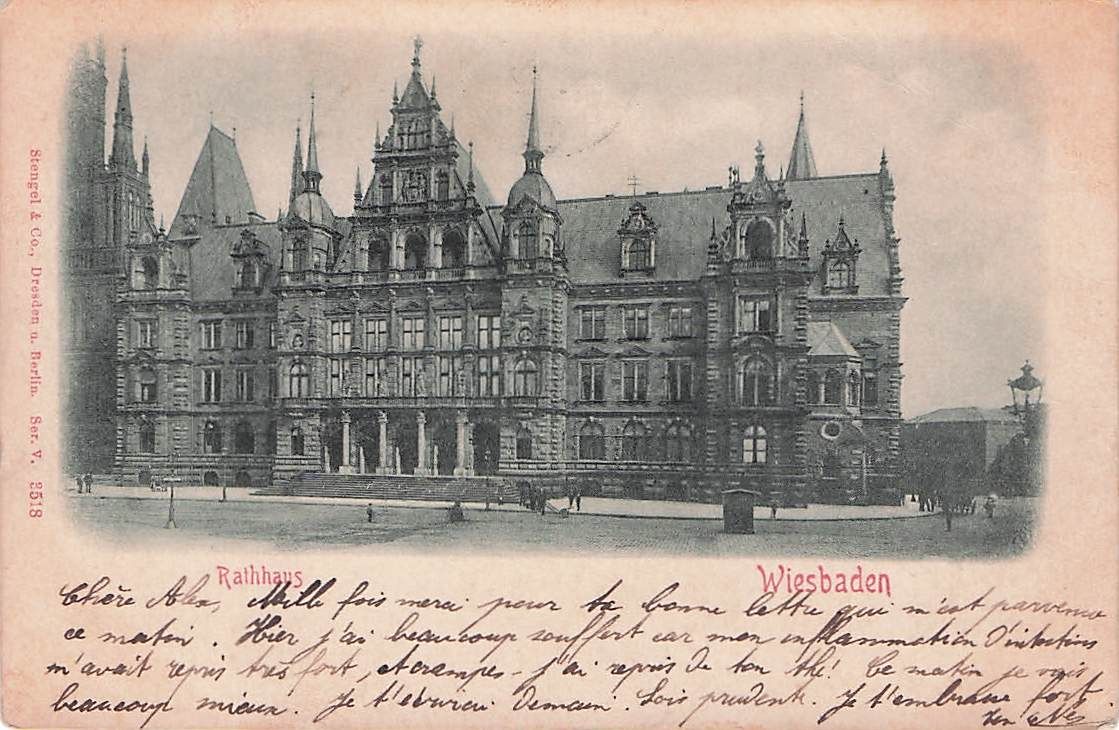 Stengel & Co., Dresden u. Berlin. Ser. V. 2518
Rathhaus
Wiesbaden
Chère Alex, Mille fois merci pour ta bonne lettre qui m'est parvenue
ce matin. Hier j'ai beaucoup souffert car mon inflammation d'intestins
m'avait repris très fort, et crampes - j'ai repris de ton thé! Ce matin je vais
beaucoup mieux. Je t'écrirai demain. Sois prudent. Je t'embrasse fort